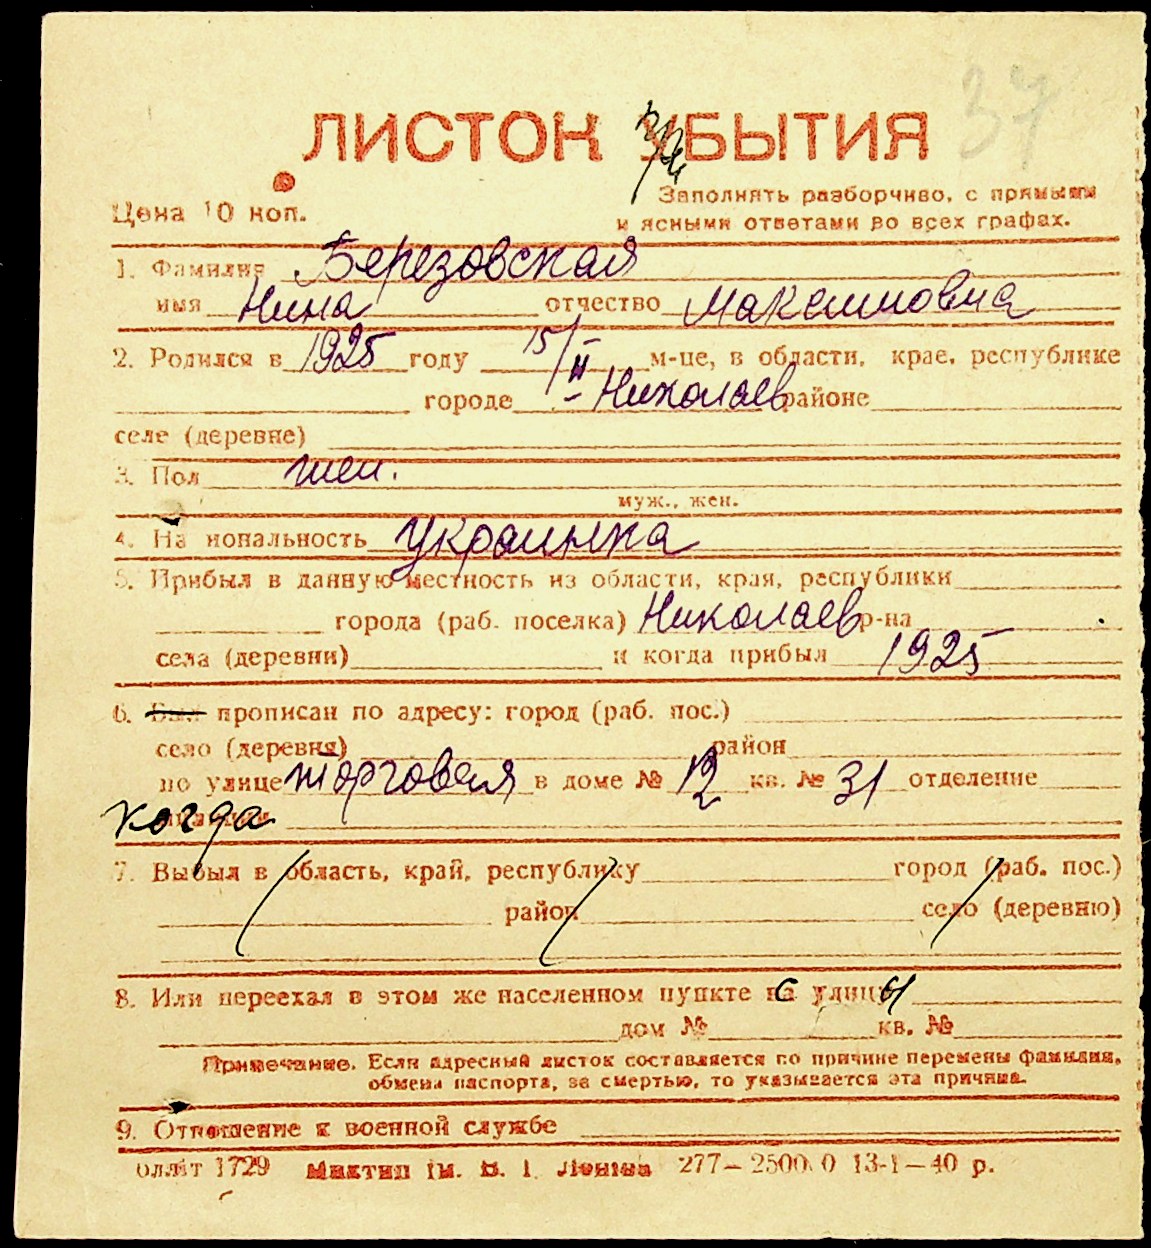 37
ЛИСТОК ПРИБЫТИЯ
Цена 10 коп.
Заполнять разборчиво, с прямыми
и ясными ответами во всех графах.
1. Фамилия Березовская
имя Нина отчество Максимовна
2. Родился в 1925 году 15/II м-це, в области, крае, республике
городе Николаев районе
селе (деревне)
3. Пол жен.
муж., жен.
4. Национальность Украинка
5. Прибыл в данную местность из области, края, республики
города (раб. поселка) Николаев р-на
села (деревни) и когда прибыл 1925
6. Был прописан по адресу: город (раб. пос.)
село (деревня) район
по улице Торговая в доме № 12 кв. № 31 отделение
когда
7. Выбыл в область, край, республику город (раб. пос.)
район село (деревню)
8. Или переехал в этом же населенном пункте с улицы
дом № кв. №
Примечание. Если адресный листок составляется по причине перемены фамилии,
обмена паспорта, за смертью, то указывается эта причина.
9. Отношение к военной службе
1729 им. В. І. Леніна 277—2500.0 13-1—40 р.